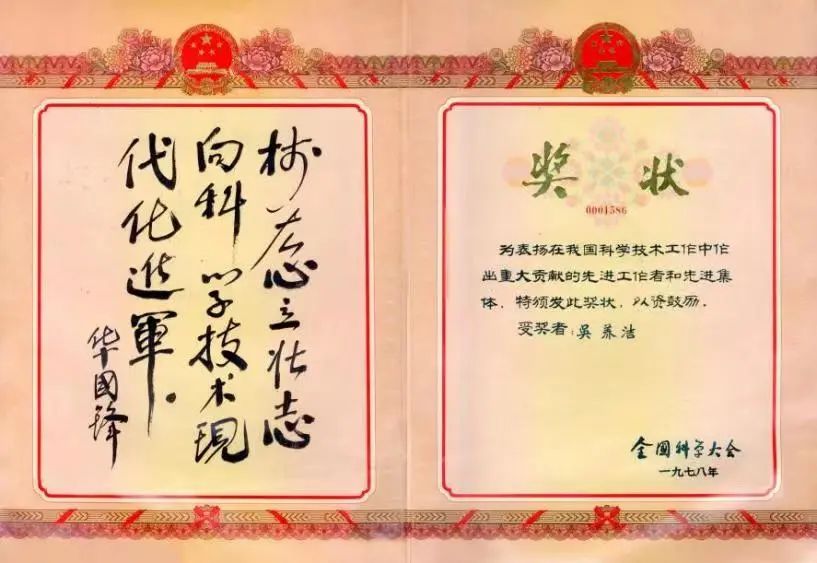 树雄心立壮志
向科学技术現
代化進軍。
华國锋
奖状
0001586
为表扬在我国科学技术工作中作
出重大贡献的先进工作者和先进集
体，特颁发此奖状，以资鼓励．
受奖者：吳养洁
全國科学大会
一九七八年